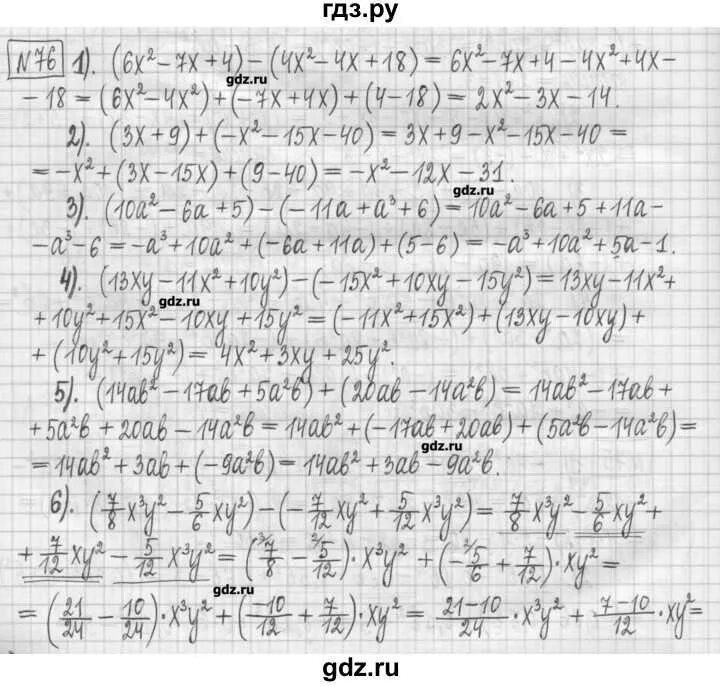 гдз.ру
№76 1). (6x² - 7x + 4) - (4x² - 4x + 18) = 6x² - 7x + 4 - 4x² + 4x -
gdz.ru
- 18 = (6x² - 4x²) + (-7x + 4x) + (4 - 18) = 2x² - 3x - 14.
2). (3x + 9) + (-x² - 15x - 40) = 3x + 9 - x² - 15x - 40 =
= -x² + (3x - 15x) + (9 - 40) = -x² - 12x - 31.
gdz.ru
3). (10a² - 6a + 5) - (-11a + a³ + 6) = 10a² - 6a + 5 + 11a -
- a³ - 6 = -a³ + 10a² + (-6a + 11a) + (5 - 6) = -a³ + 10a² + 5a - 1.
4). (13xy - 11x² + 10y²) - (-15x² + 10xy - 15y²) = 13xy - 11x² +
gdz.ru
+ 10y² + 15x² - 10xy + 15y² = (-11x² + 15x²) + (13xy - 10xy) +
+ (10y² + 15y²) = 4x² + 3xy + 25y².
5). (14ab² - 17ab + 5a²b) + (20ab - 14a²b) = 14ab² - 17ab +
+ 5a²b + 20ab - 14a²b = 14ab² + (-17ab + 20ab) + (5a²b - 14a²b) =
gdz.ru
= 14ab² + 3ab + (-9a²b) = 14ab² + 3ab - 9a²b.
6). (7/8 x³y² - 5/6 xy²) - (-7/12 xy² + 5/12 x³y²) = 7/8 x³y² - 5/6 xy² +
+ 7/12 xy² - 5/12 x³y² = (³⁄7/8 - ²⁄5/12) · x³y² + (-²⁄5/6 + 7/12) · xy² =
gdz.ru
= (21/24 - 10/24) · x³y² + (-10/12 + 7/12) · xy² = 21-10/24 · x³y² + 7-10/12 · xy² =
gdz.ru